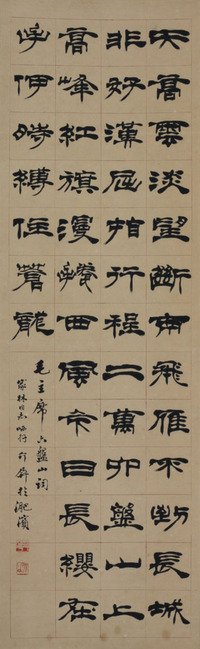 天高雲淡望斷南飛雁不到長城
非好漢屈指行程二萬六盤山上
高峰紅旗漫捲西風今日長纓在
手何時縛住蒼龍
毛主席六盤山詞
家林同志 於淝濱